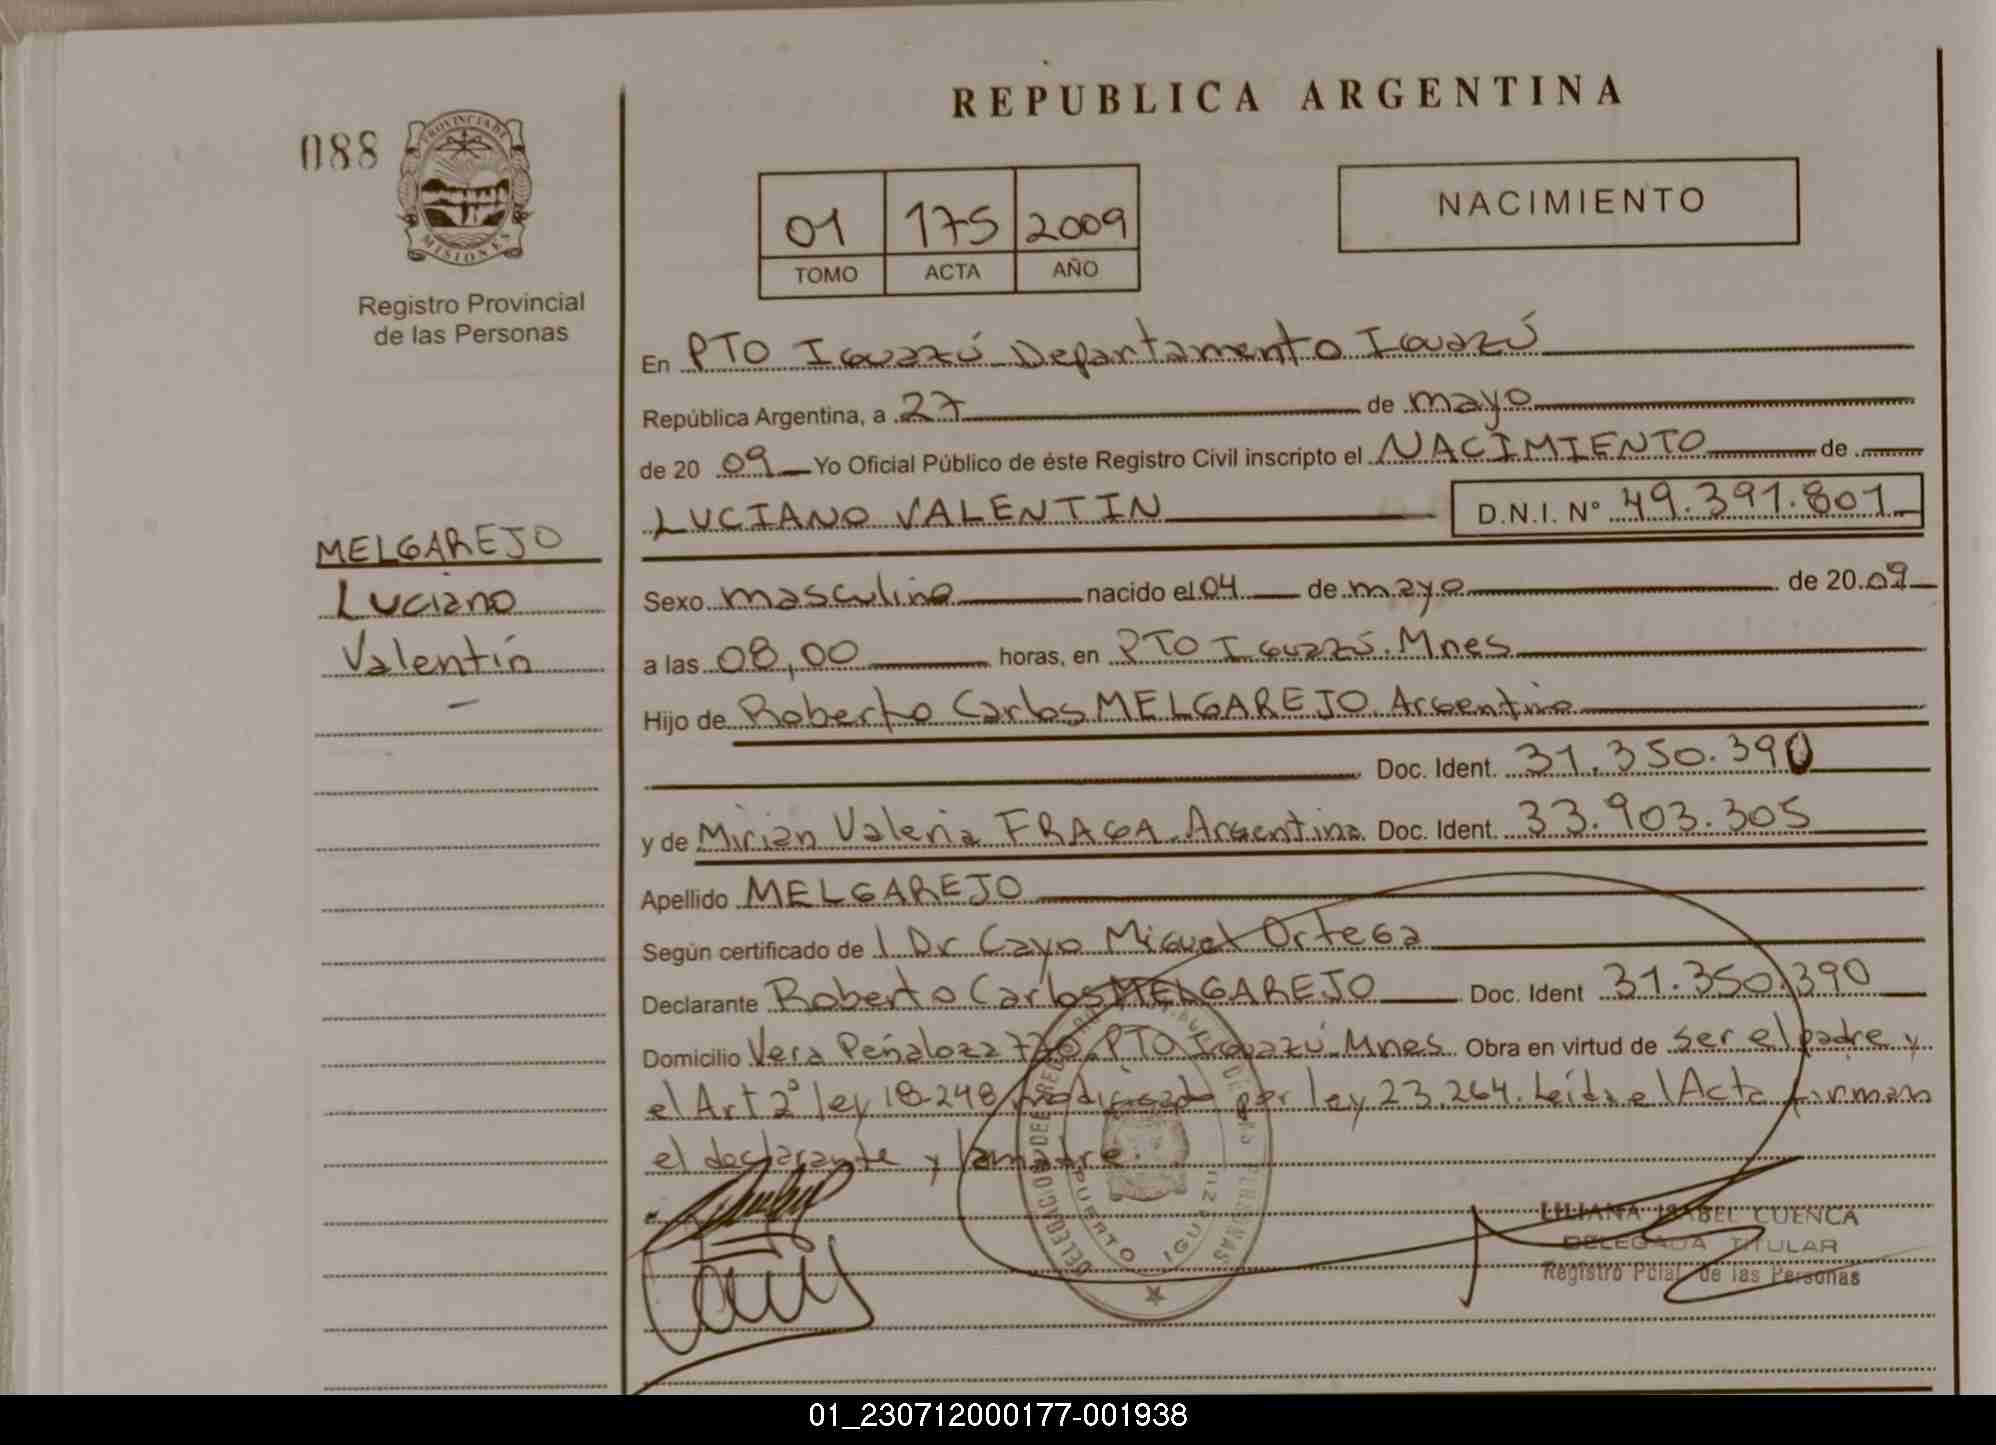 REPUBLICA ARGENTINA
088
PROVINCIA DE
MISIONES
Registro Provincial
de las Personas
NACIMIENTO
01 175 2009
TOMO ACTA AÑO
En PTO Iguazú Departamento Iguazú
República Argentina, a 27 de mayo
de 2009 Yo Oficial Público de éste Registro Civil inscripto el NACIMIENTO de
LUCIANO VALENTIN D.N.I. N° 49.391.801
MELGAREJO
Luciano
Valentín
Sexo masculino nacido el 04 de mayo de 20.09
a las 08,00 horas, en PTO Iguazú. Mnes
Hijo de Roberto Carlos MELGAREJO. Argentino
Doc. Ident. 31.350.390
y de Mirian Valeria FRAGA. Argentina. Doc. Ident. 33.903.305
Apellido MELGAREJO
Según certificado de l Dr Cayo Miguel Ortega
Declarante Roberto Carlos MELGAREJO Doc. Ident 31.350.390
Domicilio Vera Peñaloza PTO Iguazú. Mnes. Obra en virtud de ser el padre y
el Art 2° ley 18.248 modificado por ley 23.264. Leída el Acta firman
el declarante y la madre.
PUERTO IGUAZU
LILIANA ISABEL CUENCA
DELEGADA TITULAR
Registro Pcial. de las Personas
01_230712000177-001938